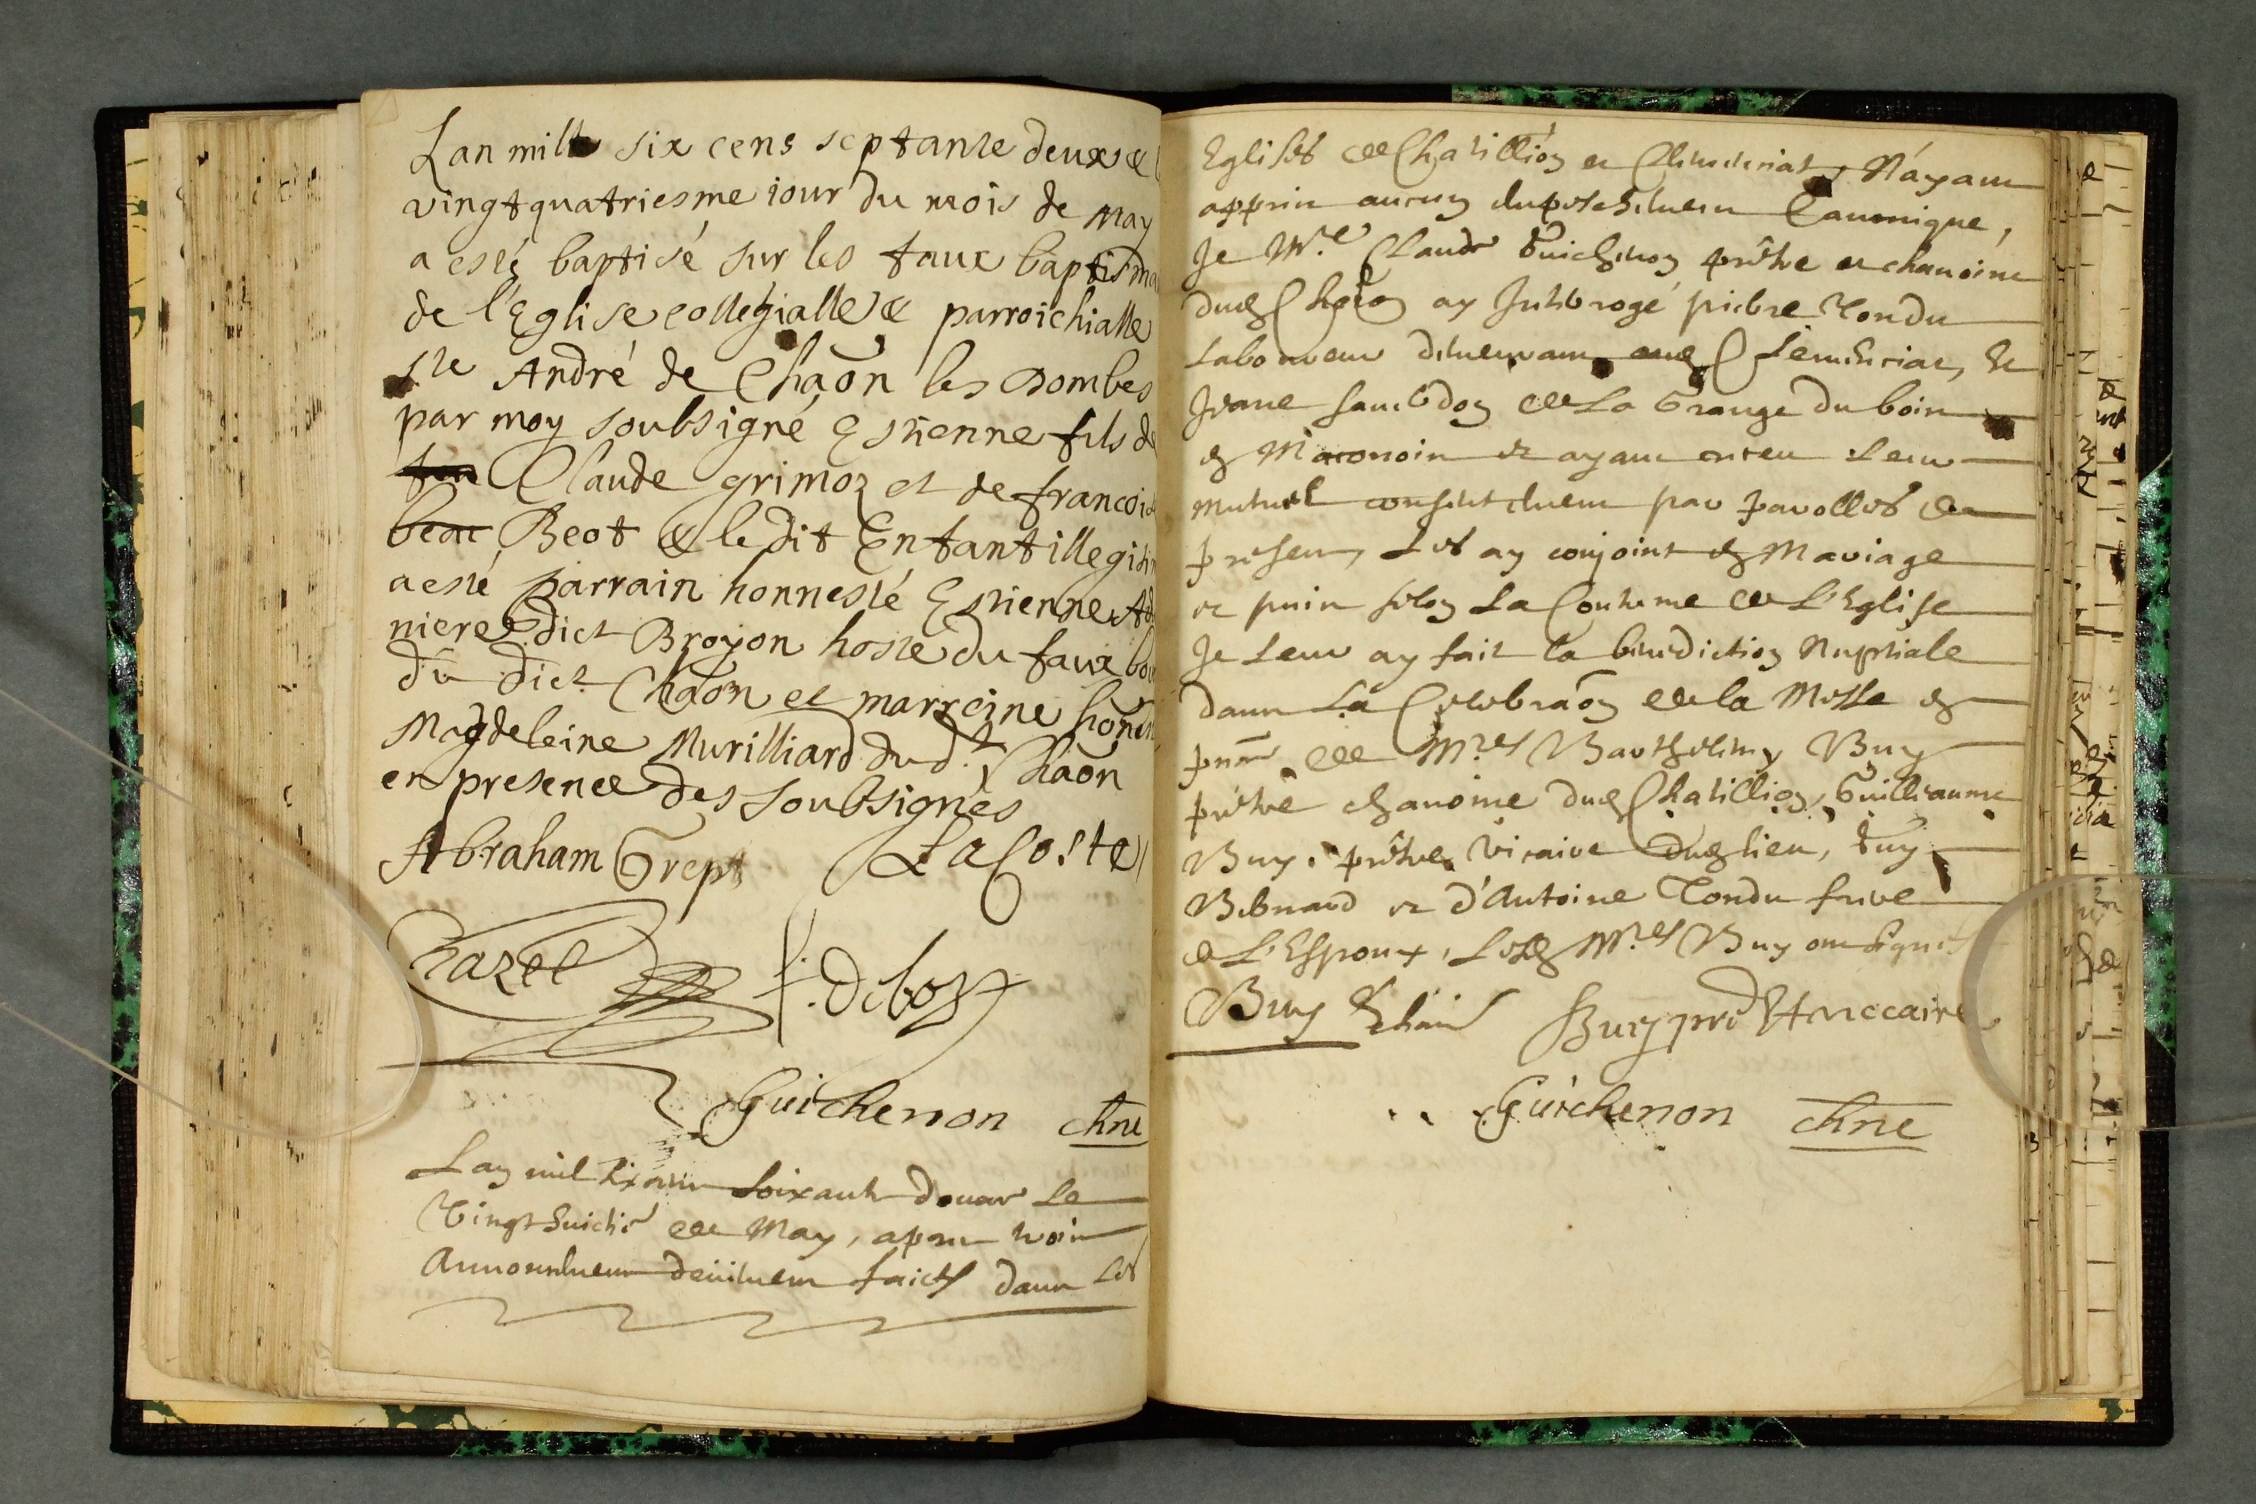 Lan mille six cens septante deux &
vingt quatriesme iour du mois de may
a esté baptisé sur les faux baptisma
de l'Eglise collegialle & parroichialle
ste André de Chaōn les Dombes
par moy soubsigné Estienne fils de
feu Claude grimoz et de francois
beat Beot & le dit Enfant illegiti
a esté parrain honnesté Estienne Ad
niere dict Broyon hoste du faux bou
du dict Chaōn et marreine hones
Magdeleine Murilliard du d.t Chaōn
en presence des soubsignés
Abraham Grept LaCoste
Chazel f. Deboz
Guichenon chne
Lan mil six cens soixante douze Le
Vingt huictie de May, apres trois
Annoncemens deüement faicts dans Les
Eglises de Chatillion et Clemenciat, N'ayant
apprins aucun empeschement Canonique,
Je M.e Claude Guichenon prêtre et chanoine
dud Chaōn ay Interrogé pierre Tondu
Laboureur demeurant aud Clemenciat, Et
Jeane de La Grange du bois
en et ayant receu Leur
mutuel consentement par parolles de
present, Les ay conjoint en Mariage
et puis selon La Coutume de L'Eglise
Je Leur ay fait la benediction Nuptiale
dans La Celebraōn de la Messe en
pnce de M.res Barthelemy Buy
prêtre chanoine dud Chatillion, Guilliaume
Buy prêtre vicaire dud lieu, Guy
Bernard et d'Antoine Tondu frere
de L'Espoux, Lesd M.res Buy ont signé
Buy Buy pre Vicaire
Guichenon chne